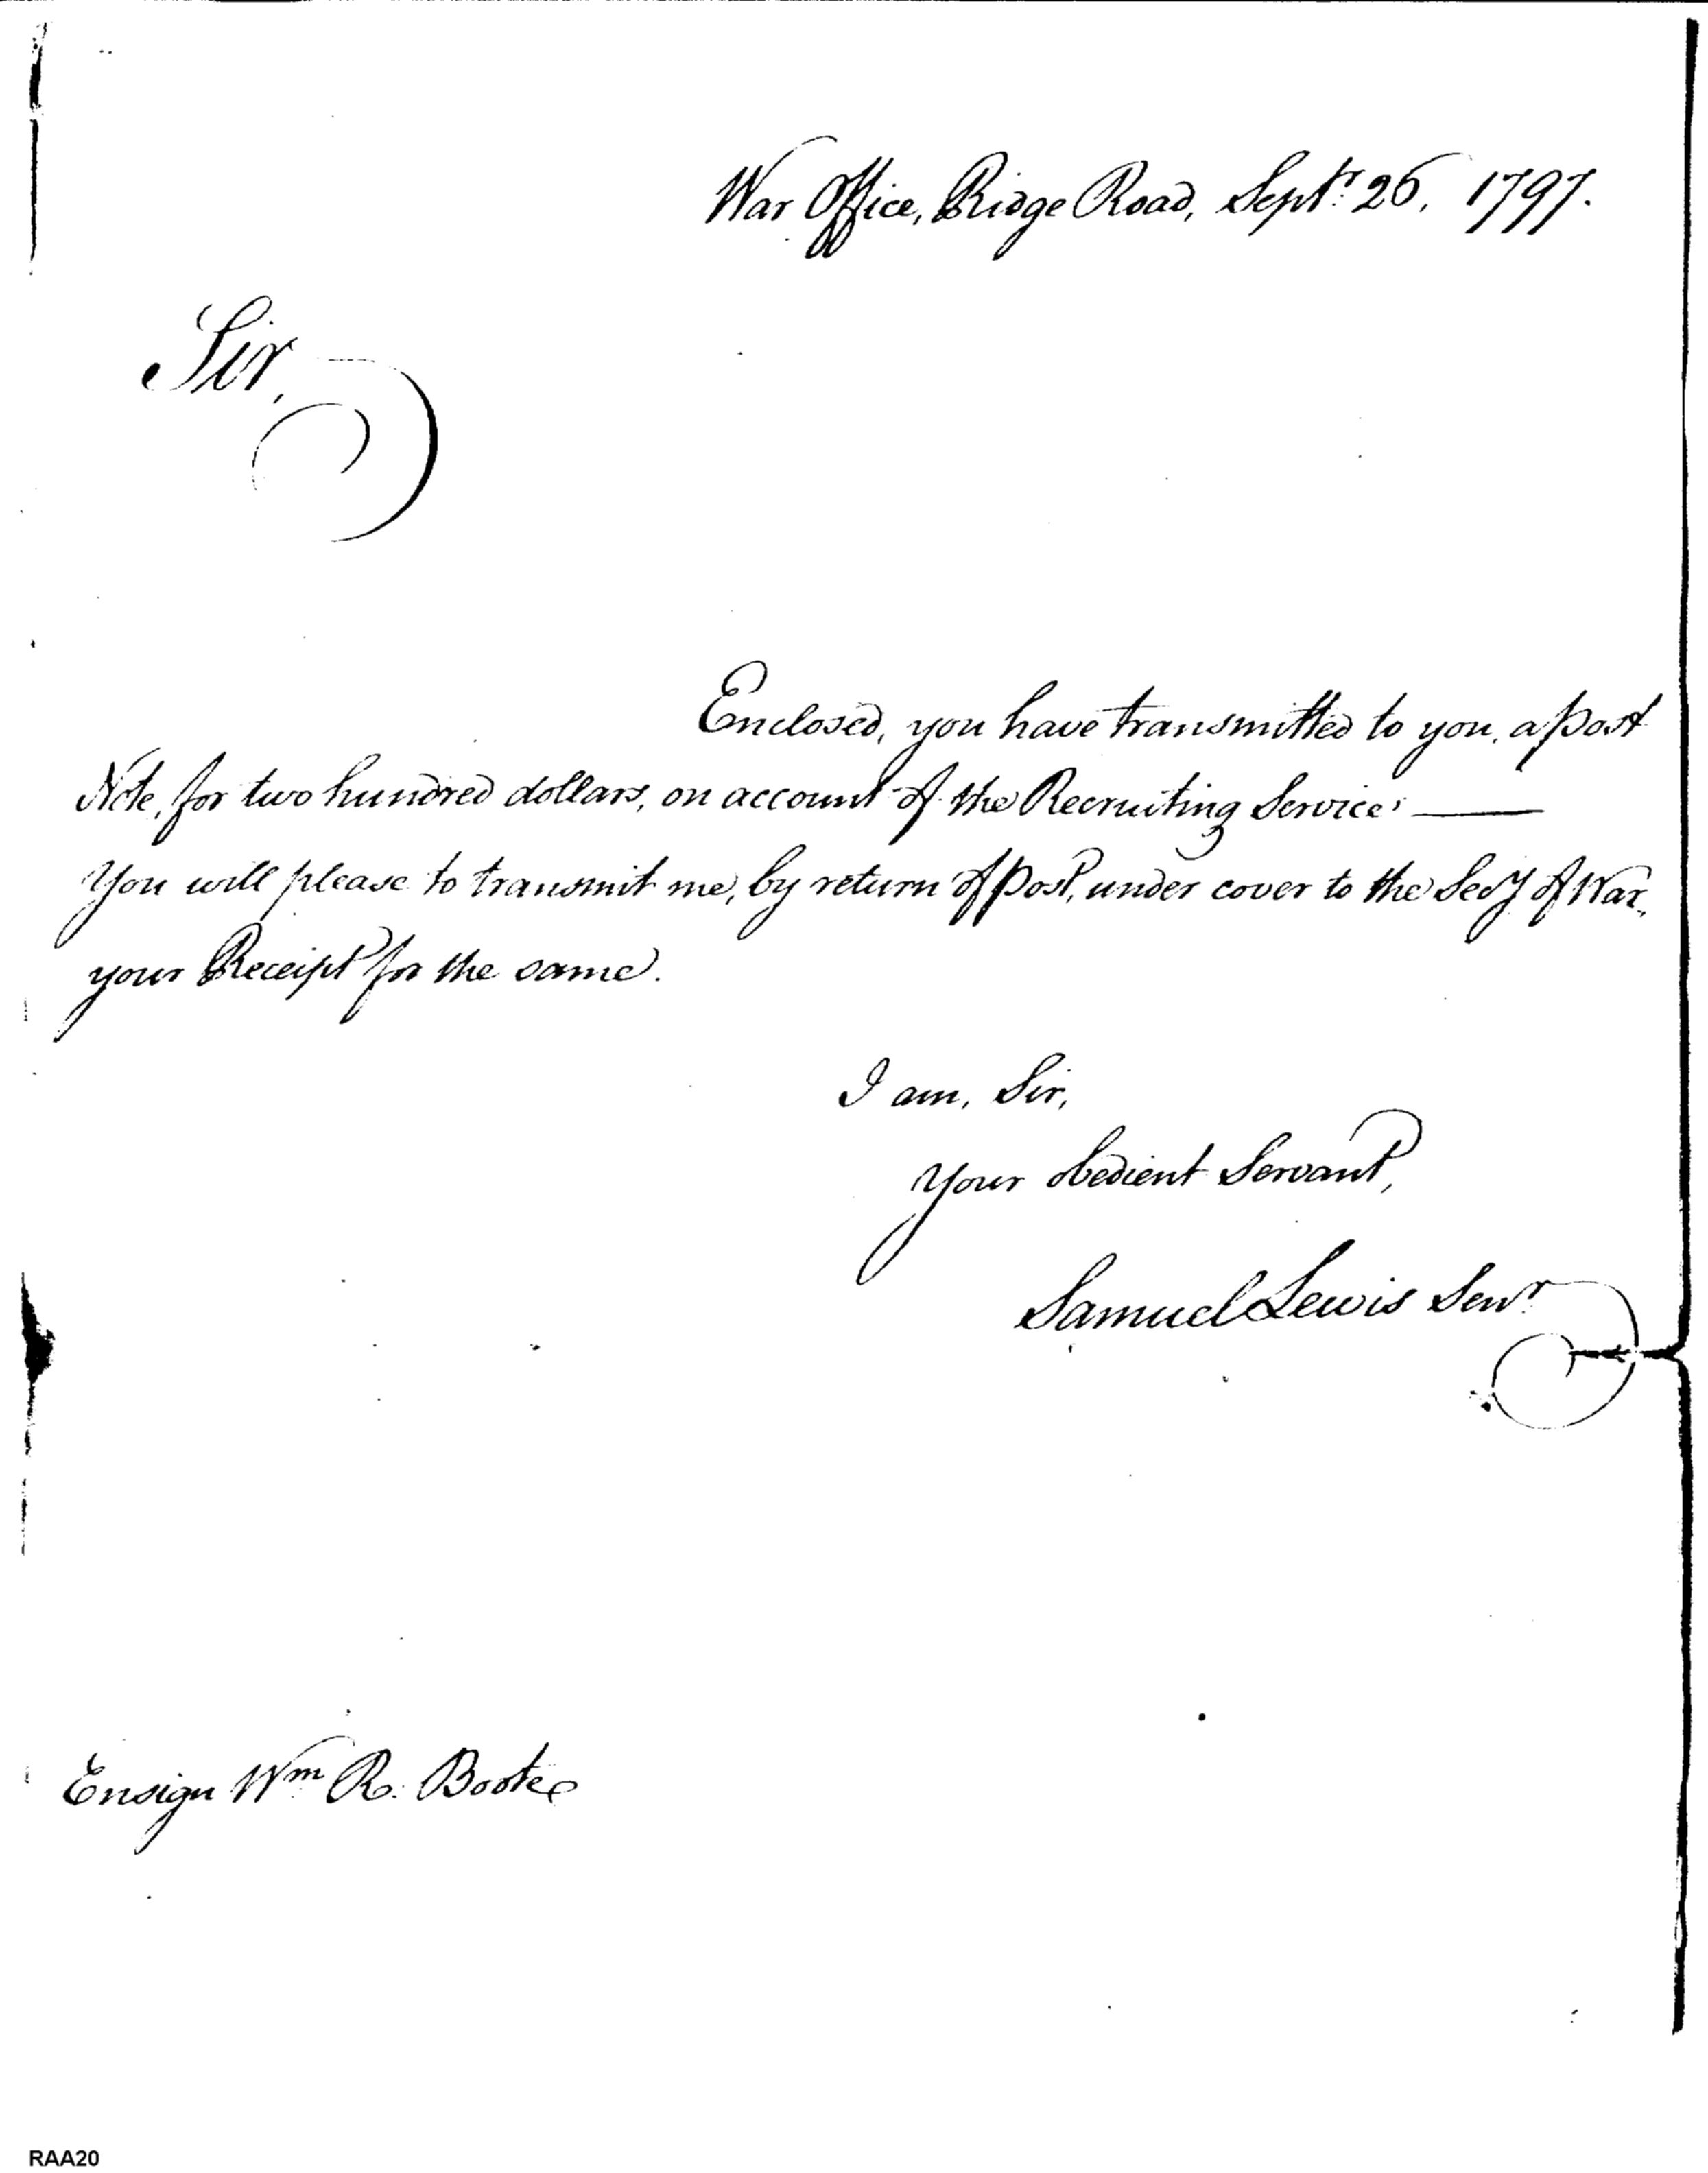 War Office, Ridge Road, Septr. 26, 1797.
Sir,
Enclosed, you have transmitted to you, a post
Note, for two hundred dollars, on account of the Recruiting Service.
You will please to transmit me, by return of post, under cover to the Secy of War,
your Receipt for the same.
I am, Sir,
Your obedient Servant,
Samuel Lewis Senr
Ensign Wm R. Bootee
RAA20